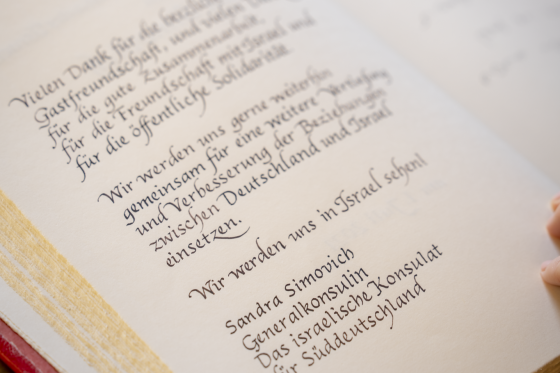 Vielen Dank für die
Gastfreundschaft, und vielen
für die gute Zusammenarbeit,
für die Freundschaft mit Israel und
für die öffentliche Solidarität.
Wir werden uns gerne weiterhin
gemeinsam für eine weitere Vertiefung
und Verbesserung der Beziehungen
zwischen Deutschland und Israel
einsetzen.
Wir werden uns in Israel sehen!
Sandra Simovich
Generalkonsulin
Das israelische Konsulat
für Süddeutschland